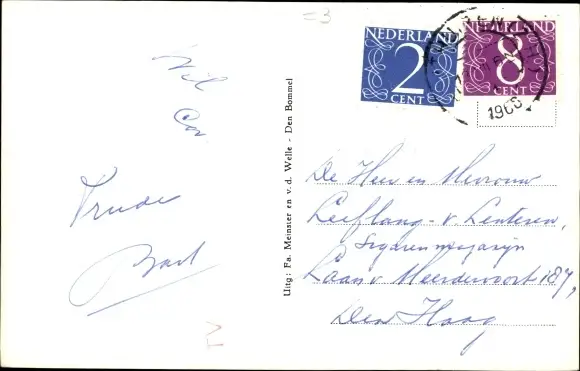 =3
NEDERLAND
2
CENT
NEDERLAND
8
CENT
1968
Wil
Cor
Truus
Bart
Uitg: Fa. Meinster en v.d. Welle - Den Bommel
De Heer en Mevrouw
Leeflang - v Lenteren,
Sigarenmagazijn
Laan v Meerdervoort 187,
Den Haag